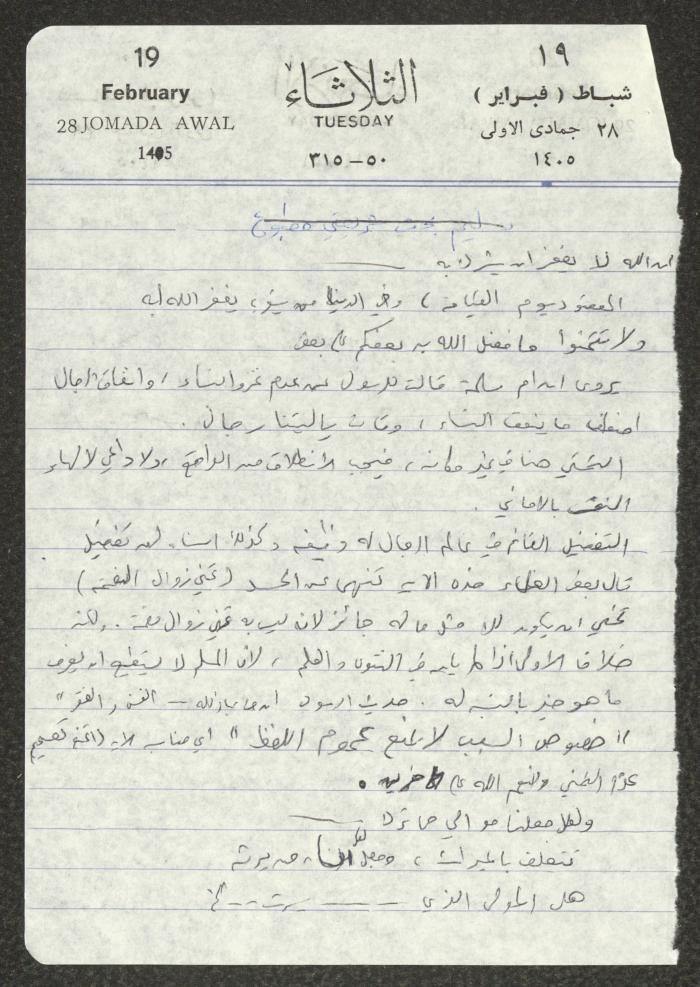 19
February
28 JOMADA AWAL
1405
الثلاثاء
TUESDAY
٥٠ – ٣١٥
١٩
شباط ( فبراير )
٢٨ جمادى الاولى
١٤٠٥
ان الله لا يغفر ان يشرك به
المقصود يوم القيامة ) وفي الدنيا من يتوب يغفر الله له
ولا تتمنوا ما فضل الله به بعضكم على بعض
يروى ان ام سلمة قالت للرسول عن عدم غزو النساء ، وانفاق الرجال
اضعاف ما ينفق النساء ، وقالت ياليتنا رجال .
التمني هنا في غير مكانه ، فيجب الانطلاق من الواقع ، ولا داعي لالهاء
النفس بالاماني .
التفضيل القائم في عالم الرجال له وظيفته وكذلك النساء لهن تفضيل
قال بعض العلماء هذه الاية تنهى عن الحسد ( تمني زوال النعمة )
تمني ان يكون لك مثل ما له جائز لان ليس به تمني زوال نعمة . ولكنه
خلاف الاولى اذا لم يكن في التقوى والعلم ، لأن المسلم لا يستطيع ان يعرف
ما هو خير بالنسبة له . حديث الرسول ان من عباد الله – الغنى والفقر "
" خصوص السبب لا يمنع عموم اللفظ " اي مناسبة الاية
التمني ولنعم الله على الآخرين .
ولكل جعلنا موالي مما ترك
تتعلق بالميراث ، وجعل لكل انسان من يرثه
هل المولى الذي